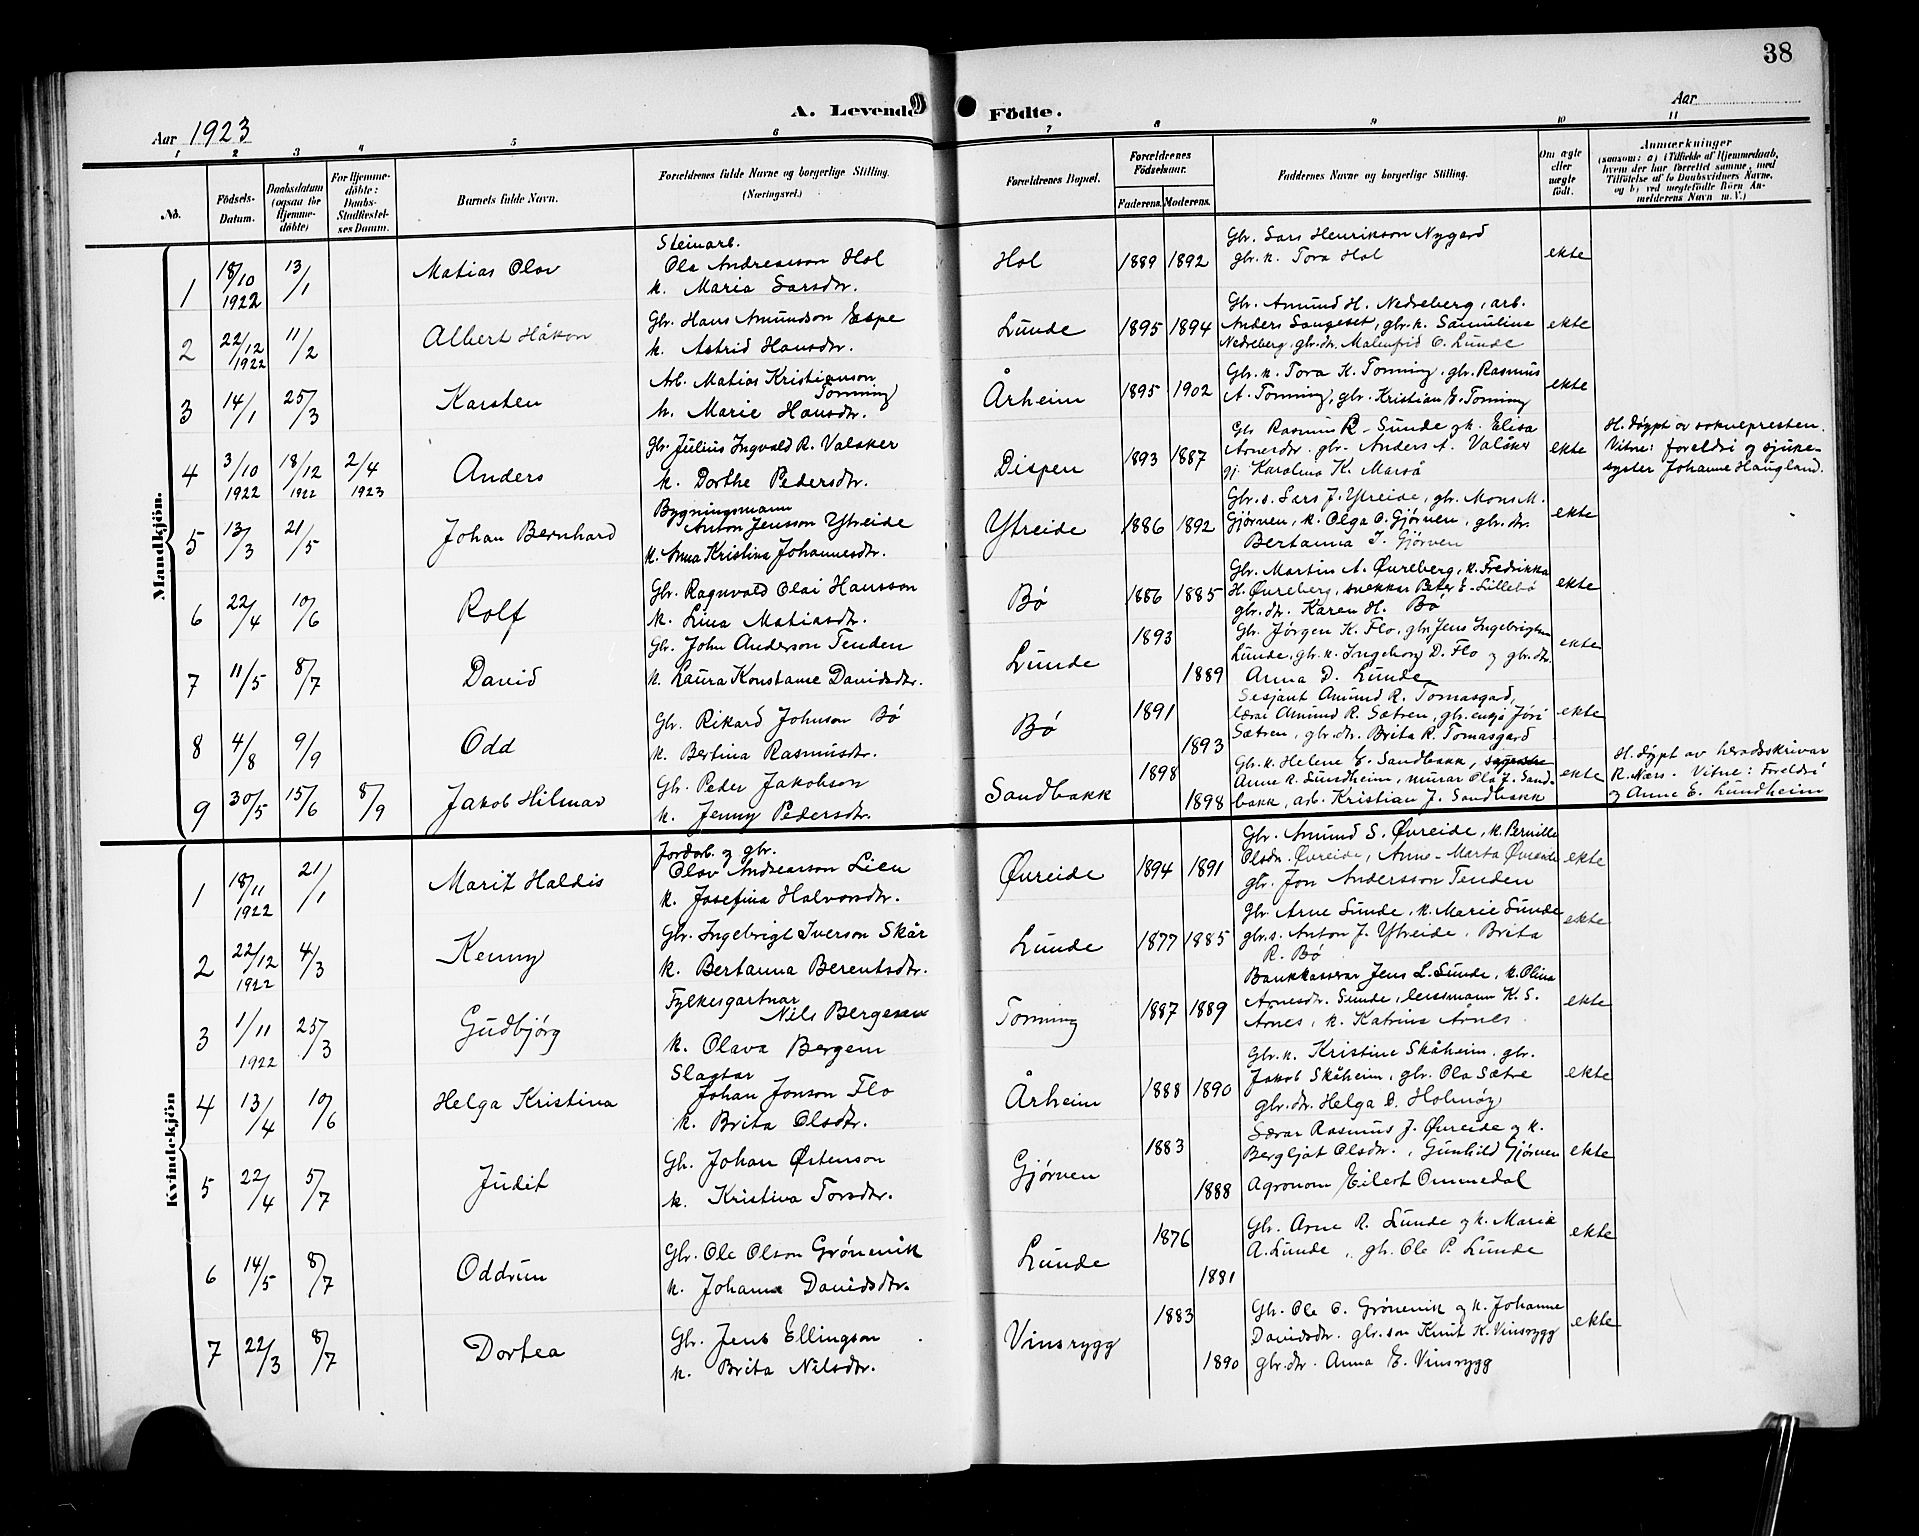 38
A. Levende Födte.
Aar 1923
Aar
1 2 3 4 5 6 7 8 9 10 11
No.
Födsels-
Datum.
Daabsdatum
(ogsaa for
Hjemme-
döbte)
For Hjemme-
döbte:
Daabs-
Stadfæstel-
ses Datum.
Barnets fulde Navn.
Forældrenes fulde Navne og borgerlige Stilling.
(Næringsvei.)
Forældrenes Bopæl.
Forældrenes
Födselsaar.
Faderens. Moderens.
Faddernes Navne og borgerlige Stilling.
Om ægte
eller
uægte
födt.
Anmærkninger
(saasom: a) i Tilfælde af Hjemmedaab,
hvem der har forrettet samme, med
Tilföielse af to Daabsvidners Navne,
og b) ved uægtefödte Börn An-
melderens Navn m. V.)
Mandkjön.
1
18/10
1922
13/1
Matias Olov
Steinarb.
Ola Andreasson Hol
k. Maria Larsdtr.
Hol
1889 1892
Gbr. Lars Henrikson Nygard
gbr.k. Tora Hol
ekte
2
22/12
1922
11/2
Albert Håkon
Gbr. Hans Amundson Espe
k. Astrid Hansdtr.
Lunde
1895 1894
Gbr. Amund H. Nedreberg, arb.
Anders Langeset, gbr.k. Samuline
Nedreberg, gbr.dtr. Malenfrid O. Lunde
ekte
3
14/1
25/3
Karsten
Arb. Matias Kristianson
Tonning
k. Marie Hansdtr.
Årheim
1895 1902
Gbr. k. Tora K. Tonning, gbr. Rasmus
A. Tonning, gbr. Kristian E. Tonning
ekte
4
3/10
1922
18/12
1922
2/4
1923
Anders
Gbr. Julius Ingvald R. Valaker
k. Dorthe Pedersdtr.
Dispen
1893 1887
Gbr Rasmus R. Sunde og k. Elisa
Arnesdtr. gbr. Anders A. Valåker
gj. Karolina K. Marså
ekte
H. døypt av sokneprestен.
Vitne: foreldri og sjuke-
syster Johanne Haugland.
5
13/3
21/5
Johan Bernhard
Bygningsmann
Anton Jensson Ytreide
k. Anna Kristina Johannesdtr.
Ytreide
1886 1892
Gbr.s. Lars J. Ytreide, gbr. Mons M.
Gjørven, k. Olga O. Gjørven, gbr. dtr.
Bertanna J. Gjørven
ekte
6
22/4
10/6
Rolf
Gbr. Ragnvald Olai Hansson
k. Lina Matiasdtr.
Bø
1886 1885
Gbr. Martin A. Øvreberg, k. Fredrikka
H. Øvreberg, snekkar Peter E. Lillebø
gbr. dtr. Karen H. Bø
ekte
7
11/5
8/7
David
Gbr. John Anderson Tenden
k. Laura Konstanse Davidsdtr.
Lunde
1893
1889
Gbr. Jørgen K. Flo, gbr. Jens Ingebrigtsen
Lunde, gbr. k. Ingeborg D. Flo og gbr. dtr.
Anna D. Lunde
ekte
8
4/8
9/9
Odd
Gbr. Rikard Johnson Bø
k. Bertina Rasmusdtr.
Bø
1891
1893
Sesjant Amund R. Tomasgard,
Lærar Amund R. Sætren, gbr. enkja Jøri
Sætren, gbr. dtr. Brita R. Tomasgard
ekte
9
30/5
15/6
8/9
Jakob Hilmar
Gbr. Peder Jakobson
k. Jenny Pedersdtr.
Sandbakk
1898
1898
Gbr. k. Helene E. Sandbakk,
Anne R. Lundheim, murar Ola J. Sand-
bakk, arb. Kristian J. Sandbakk
ekte
H. døypt av heradsskrivar
R. Nærs. Vitne: Foreldri
og Anne E. Lundheim
Kvindekjön
1
18/11
1922
21/1
Marit Haldis
Jordarb. og gbr.
Olav Andreasson Lien
k. Josefina Halvorsdtr.
Øvreide
1894 1891
Gbr. Amund S. Øvreide, k. Pernille
Olsdtr. Øvreide, Anne-Marta Øvreide
gbr. Jon Andersson Tenden
ekte
2
22/12
1922
4/3
Kenny
Gbr. Ingebrigt Iverson Skår
k. Bertanna Berentsdtr.
Lunde
1877 1885
Gbr. Arne Sunde, k. Marie Sunde
gbr.s. Anton J. Ytreide, Brita
R. Bø
ekte
3
1/11
1922
25/3
Gudbjørg
Fylkesgartnar
Nils Bergesen
k. Olava Bergem
Tonning
1887 1889
Bankkasserar Jens L. Sunde, k. Olina
Arnesdtr. Sunde, lensmann K. S.
Årnes, k. Katrine Årnes
ekte
4
13/4
10/6
Helga Kristina
Slagtar
Johan Jonson Flo
k. Brita Olsdtr.
Årheim
1888 1890
Gbr.k. Kristine Skåheim, gbr.
Jakob Skåheim, gbr. Ola Sætre
gbr. dtr. Helga O. Holmøy
ekte
5
22/4
5/7
Judit
Gbr. Johan Østenson
k. Kristina Torsdtr.
Gjørven
1883
1888
Lærar Rasmus J. Øvreide og k.
Bergljot Olsdtr., Gunhild Gjørven
Agronom Eilert Ommedal
ekte
6
14/5
8/7
Oddrun
Gbr. Ole Olson Grønevik
k. Johanna Davidsdtr.
Lunde
1876
1881
Gbr. Arne R. Lunde og k. Marie
A. Lunde, gbr. Ole P. Lunde
ekte
7
22/3
8/7
Dortea
Gbr. Jens Ellingson
k. Brita Nilsdtr.
Vinsrygg
1883
1890
Gbr. Ole O. Grønevik og k. Johanne
Davidsdtr. gbr. son Knut K. Vinsrygg
gbr. dtr. Anna E. Vinsrygg
ekte